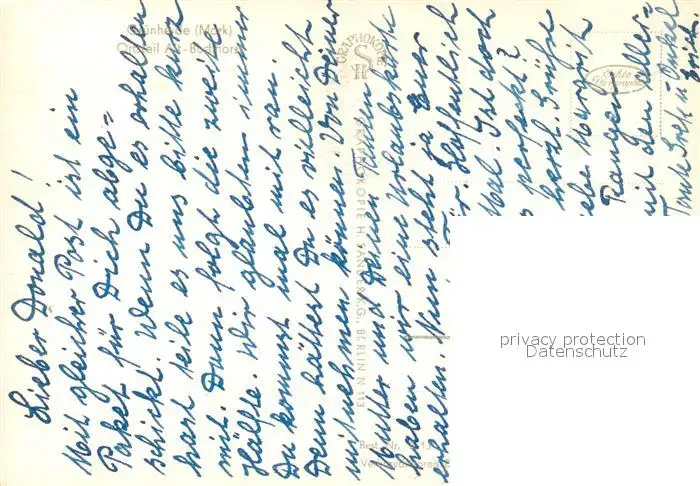 Grünheide (Mark)
Ortsteil Alt-Buchhorst
Lieber Donald!
Mit gleicher Post ist ein
Paket für Dich abge=
schickt. Wenn Du es erhalten
hast teile es uns bitte kurz
mit. Dann folgt die zweite
Hälfte. Wir glaubten immer
Du kommst mal mit ran.
Denn hättest Du es vielleicht
mitnehmen können. Von Deiner
Mutter und Deinen
haben wir eine Urlaubskarte
erhalten. Nun steht ja Euer
ür. Hoffentlich
Mal. Ist doch
perfekt?
herzl. Grüße
ebe Margrit
mit den aller=
Tante u. Onkel
GRAPHOKOPIE H. SANDER K.G., BERLIN N 113
Best. Nr.
privacy protection
Datenschutz